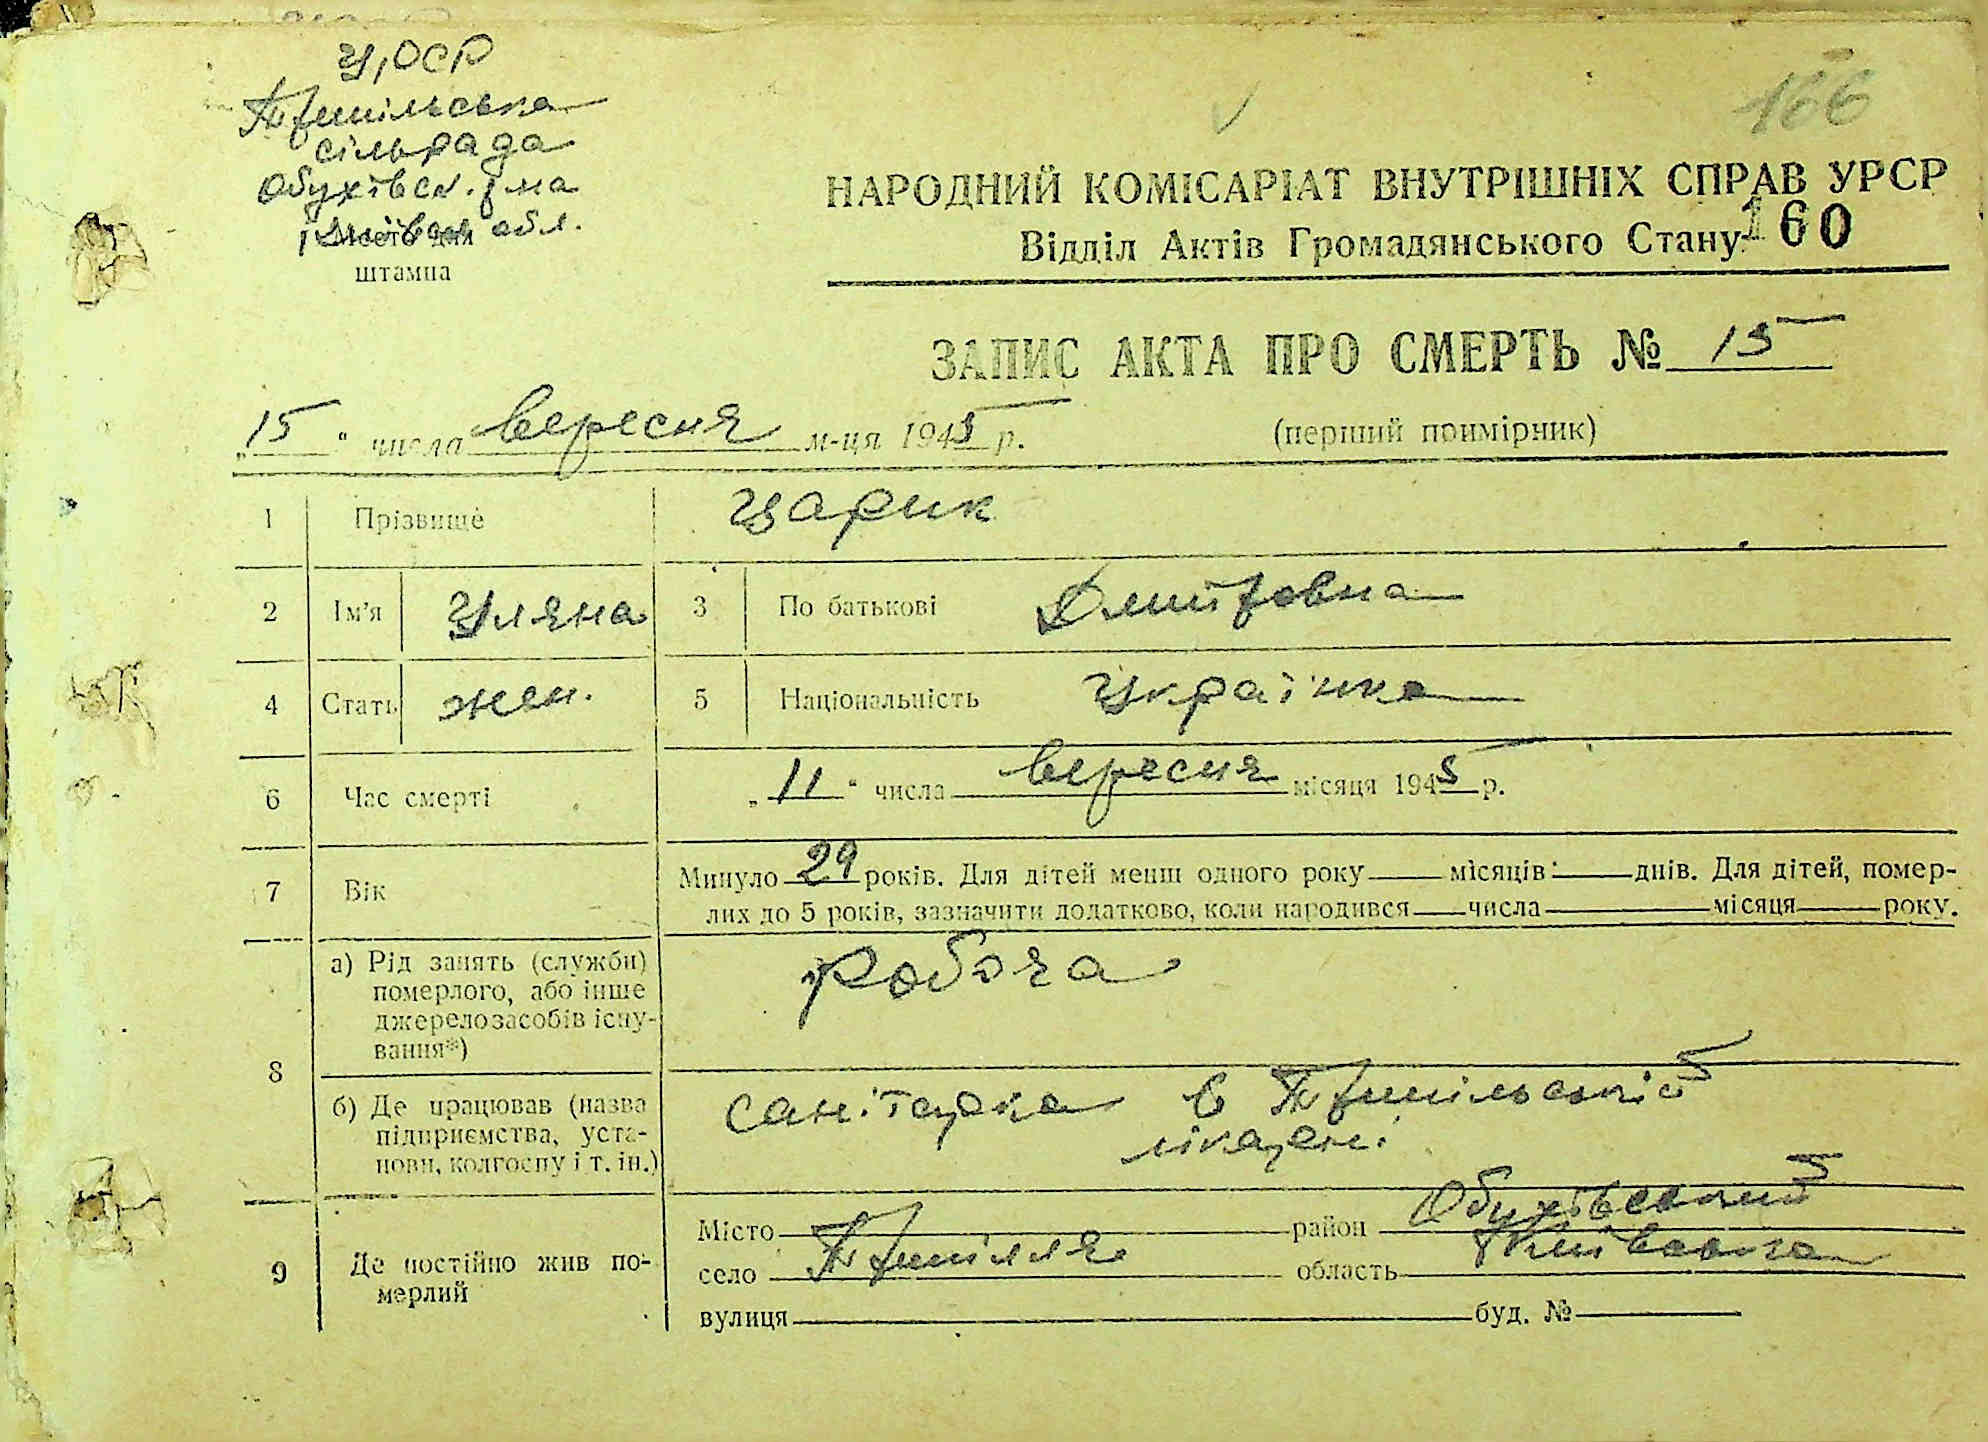 УРСР
Трипільська
сільрада
Обухівськ. р-на
Київськ. обл.
Місто для
штампа
166
НАРОДНИЙ КОМІСАРІАТ ВНУТРІШНІХ СПРАВ УРСР
Відділ Актів Громадянського Стану
160
ЗАПИС АКТА ПРО СМЕРТЬ № 15
„15“ числа вересня м-ця 1945 р.
(перший примірник)
1 Прізвище Царик
2 Ім'я Уляна 3 По батькові Дмитровна
4 Стать жен. 5 Національність Українка
6 Час смерті „11“ числа вересня місяця 1945 р.
7 Вік Минуло 29 років. Для дітей менш одного року місяців днів. Для дітей, помер-
лих до 5 років, зазначити додатково, коли народився числа місяця року.
8 а) Рід занять (служби)
померлого, або інше
джерело засобів існу-
вання*)
робоча
б) Де працював (назва
підприємства, уста-
нови, колгоспу і т. ін.)
санітарка в Трипільській
лікарні
9 Де постійно жив по-
мерлий
Місто район Обухівський
село Трипілля область Київська
вулиця буд. №